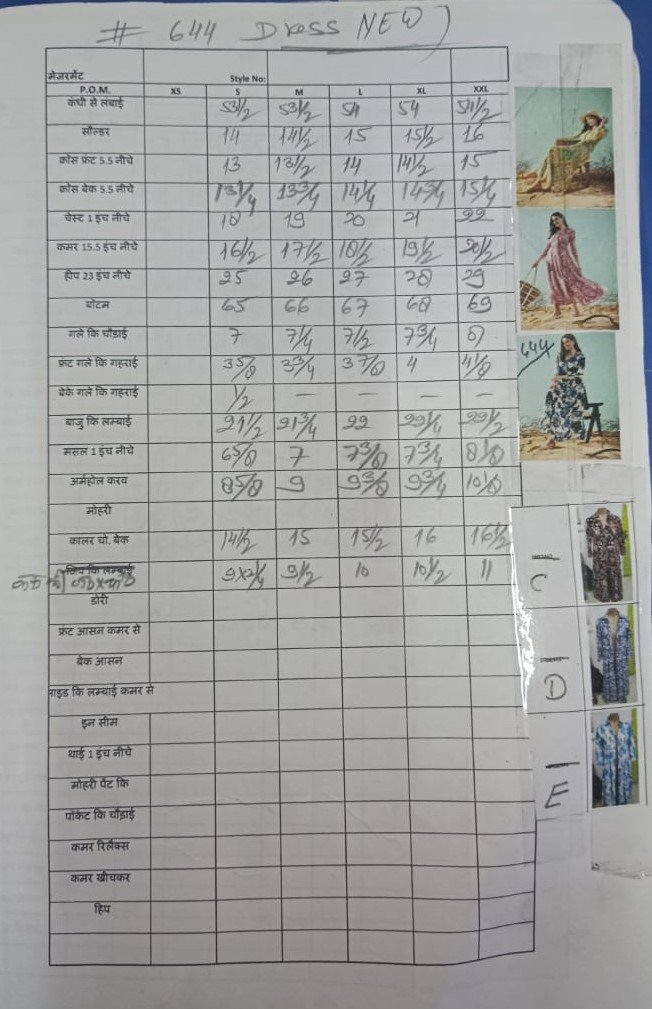 # 644 Dress NEW)
मेजरमेंट Style No:
P.O.M. XS S M L XL XXL
कंधी से लंबाई 53½ 53½ 54 54 54½
सौल्डर 14 14½ 15 15½ 16
क्रोस फ्रंट 5.5 नीचे 13 13½ 14 14½ 15
क्रोस बेक 5.5 नीचे 13¼ 13¾ 14¼ 14¾ 15¼
चेस्ट 1 इंच नीचे 18 19 20 21 22
कमर 15.5 इंच नीचे 16½ 17½ 18½ 19½ 20½
हीप 23 इंच नीचे 25 26 27 28 29
बोटम 65 66 67 68 69
गले कि चौड़ाई 7 7¼ 7½ 7¾ 8
फ्रंट गले कि गहराई 3 5/8 3¾ 3 7/8 4 4 1/8
बेके गले कि गहराई ½ — — — —
बाजु कि लम्बाई 21½ 21¾ 22 22¼ 22½
मसल 1 इंच नीचे 6 5/8 7 7 3/8 7¾ 8 1/8
अर्महोल करव 8 5/8 9 9 3/8 9¾ 10 1/8
मोहरी
कालर चो. बेक 14½ 15 15½ 16 16½
9x2¼ 9½ 10 10½ 11
डोरी
फ्रंट आसन कमर से
बेक आसन
साइड कि लम्बाई कमर से
इन सीम
थाई 1 इंच नीचे
मोहरी पेंट कि
पॉकेट कि चौड़ाई
कमर रिलैक्स
कमर खीचकर
हिप
644
C
D
E